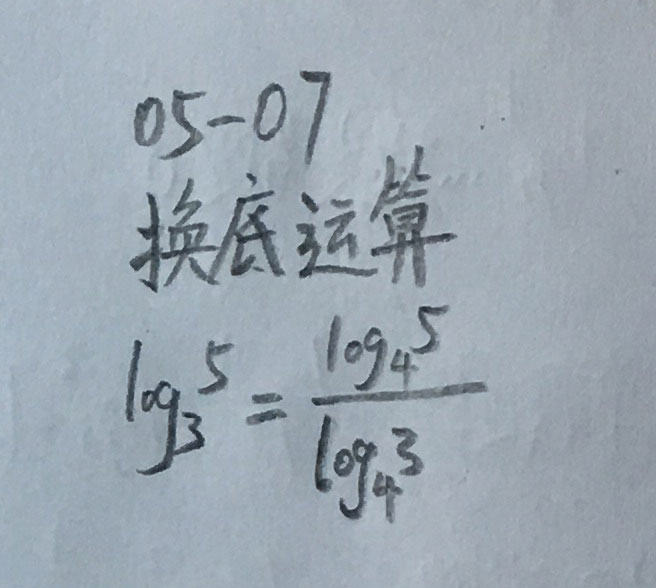 05-07
换底运算
log₃5 = log₄5 / log₄3